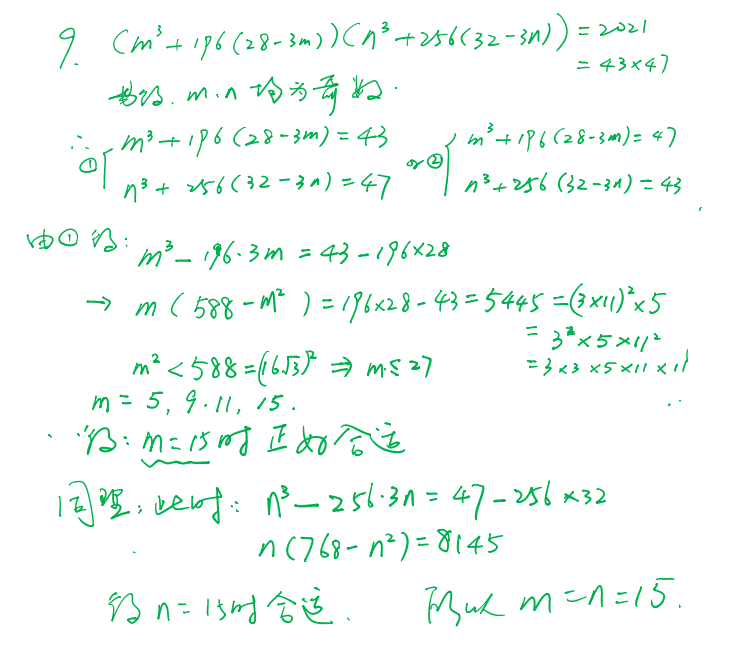 9. (m³+196(28-3m))(n³+256(32-3n)) = 2021
= 43×47
易得. m.n 均为奇数.
∴ ① { m³+196(28-3m)=43 or ② { m³+196(28-3m)=47
n³+256(32-3n)=47 n³+256(32-3n)=43
由①得: m³-196·3m = 43-196×28
→ m(588-m²)=196×28-43=5445=(3×11)²×5
= 3²×5×11²
m²<588=(16√3)² ⇒ m≤27 =3×3×5×11×11
m = 5, 9.11, 15.
得: m=15时 正好合适
同理, 此时: n³-256·3n = 47-256×32
n(768-n²)=8145
得 n=15时合适. 所以 m=n=15.